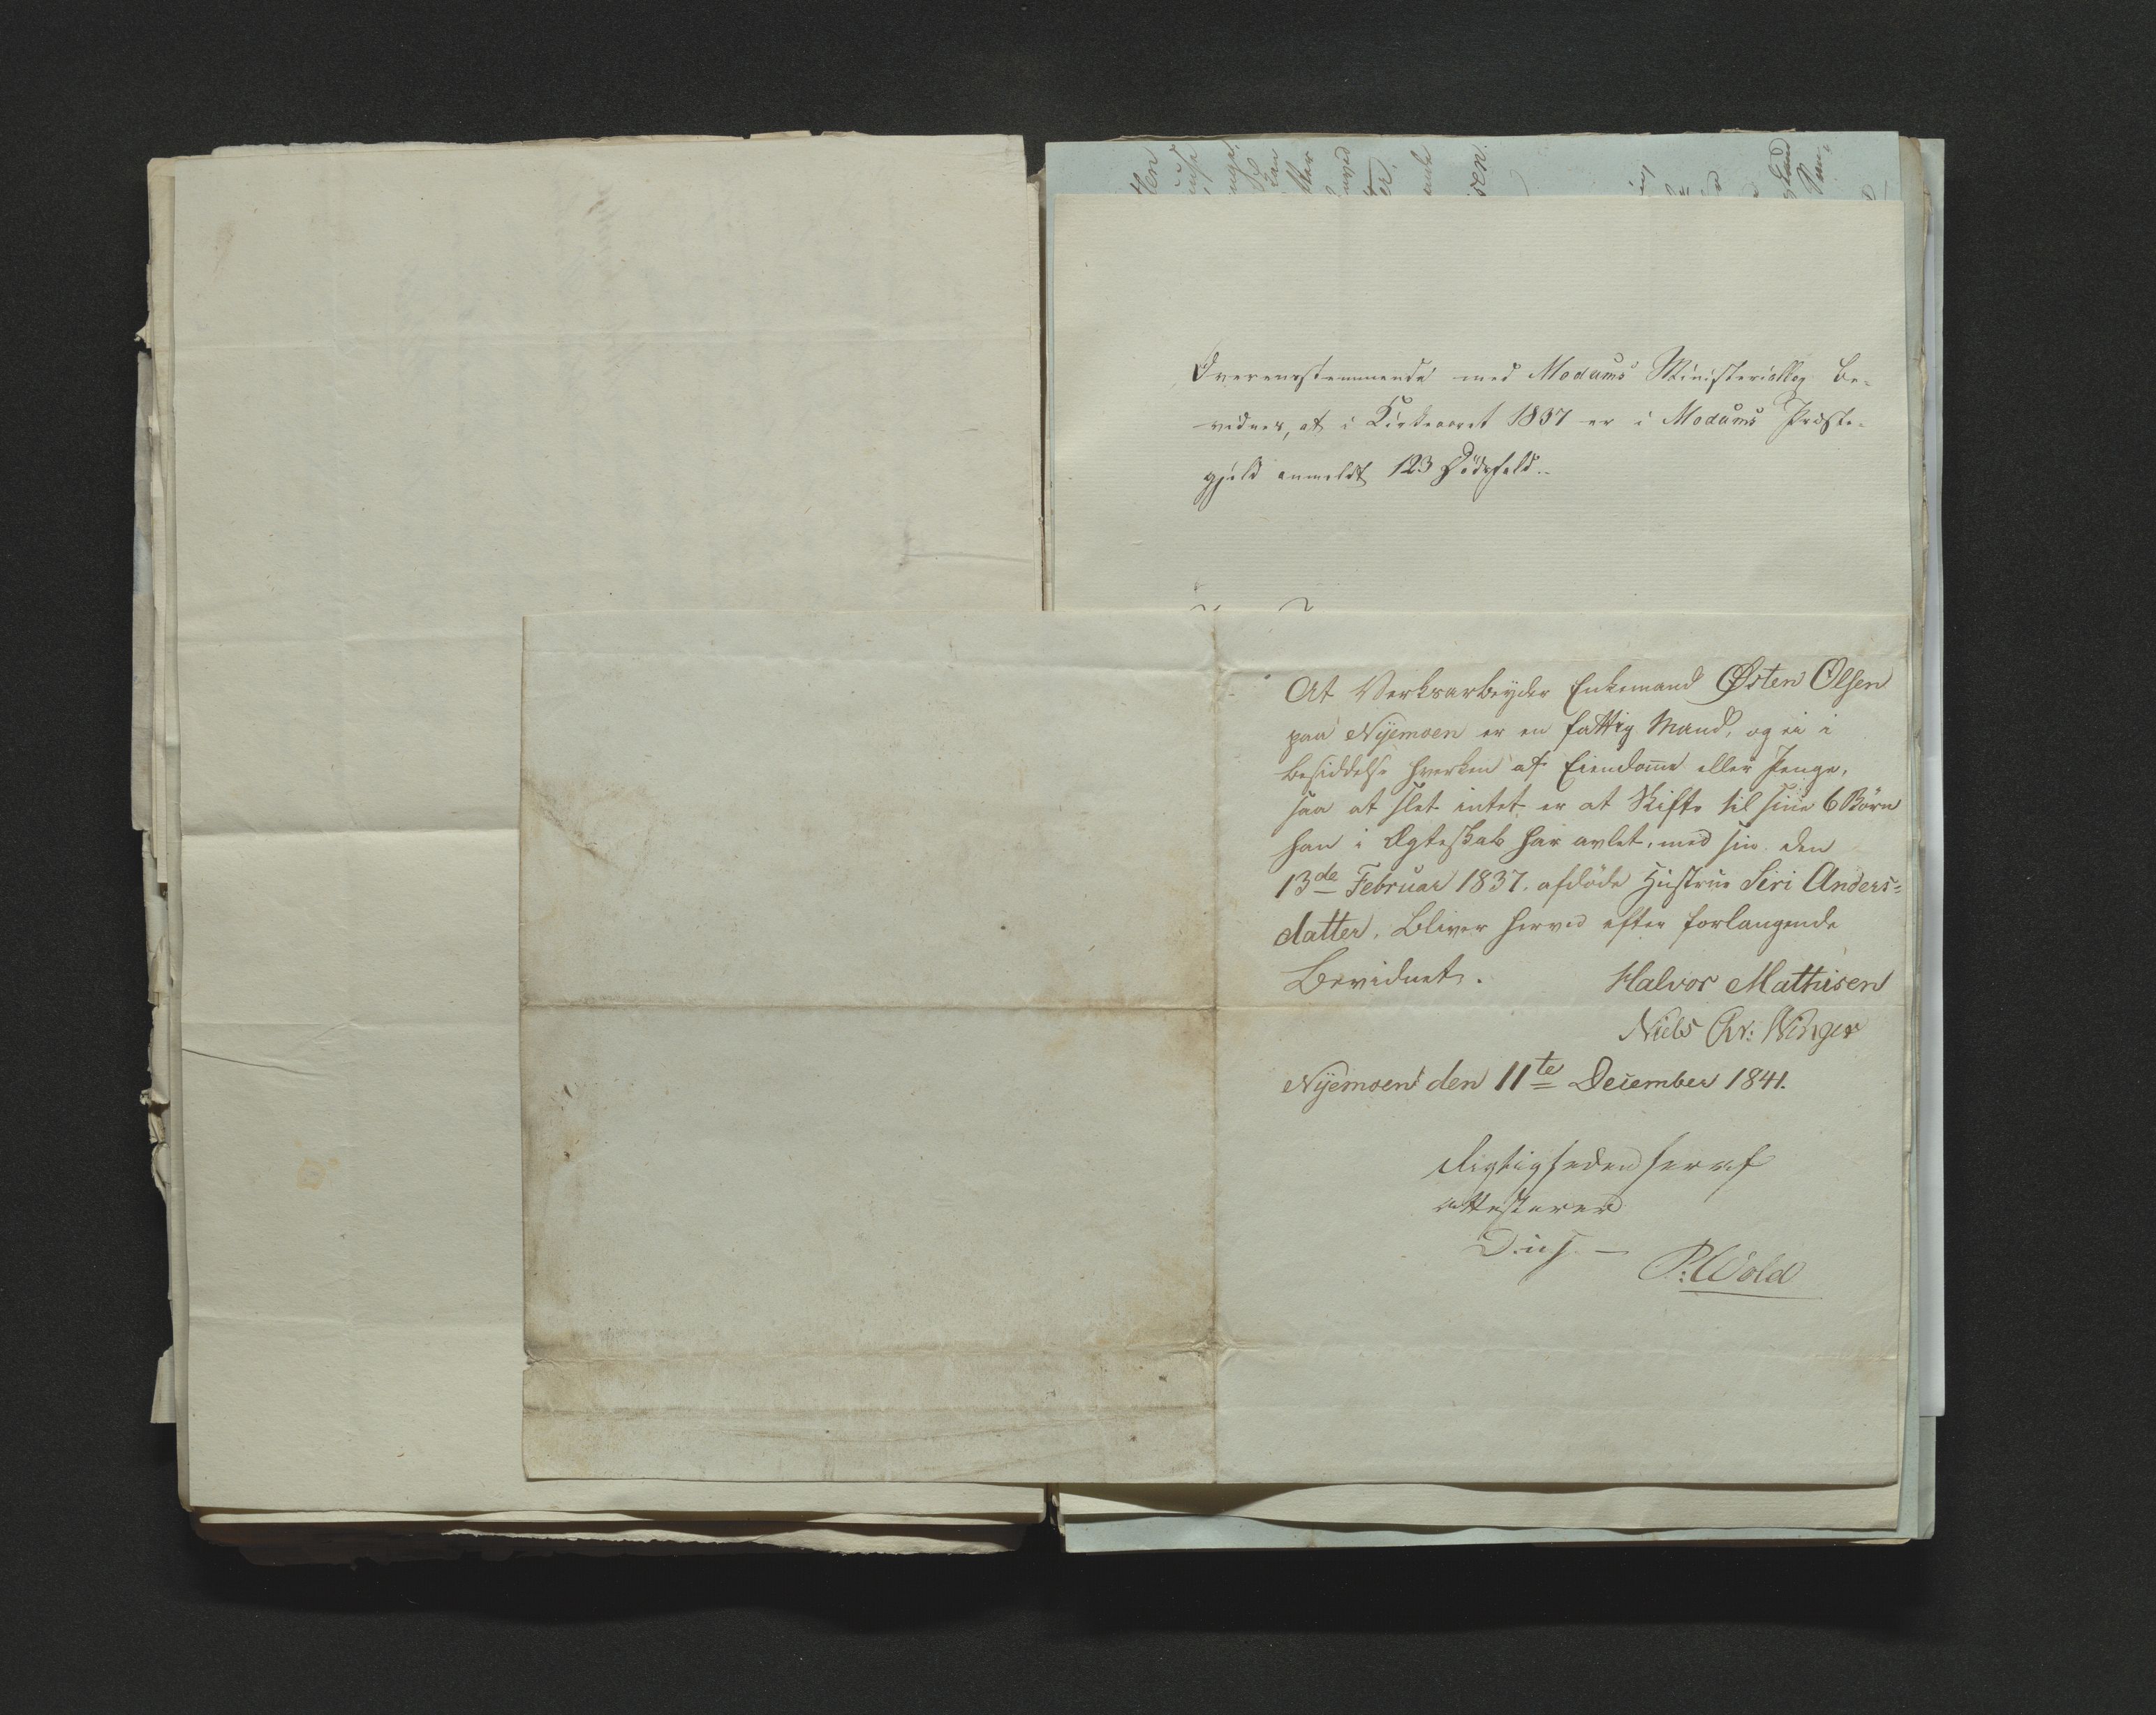 Overensstemmende med Modums Ministerialbog be-
vidnes, at i Kirkeaaret 1837 er i Modums Præste-
gjeld anmeldt 123 Dödsfald.
At Verksarbeyder Enkemand Østen Olsen
paa Nyemoen er en fattig Mand, og ei i
besiddelse hverken af Eiendomme eller Penge,
saa at slet intet er at Skifte til sine 6 Börn
han i Ægteskab har avlet, med sin den
13de Februar 1837. afdöde Hustrue Siri Anders=
datter. Bliver herved efter forlangende
Bevidnet.
Halvor Mathisen
Niels Chr: Winger
Nyemoen den 11te December 1841.
Rigtigheden heraf
attesterer
P: Wold